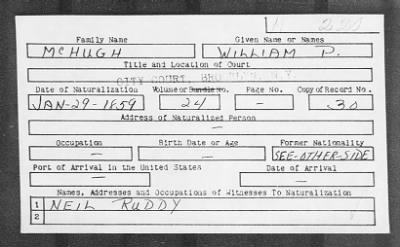 Family Name Given Name or Names
McHUGH WILLIAM P.
Title and Location of Court
CITY COURT, BROOKLYN, N.Y.
Date of Naturalization Volume or Bundle No. Page No. Copy of Record No.
JAN-29-1859 24 - 30
Address of Naturalized Person
-
Occupation Birth Date or Age Former Nationality
- - SEE-OTHER-SIDE
Port of Arrival in the United States Date of Arrival
- -
Names, Addresses and Occupations of Witnesses To Naturalization
1 NEIL RUDDY
2